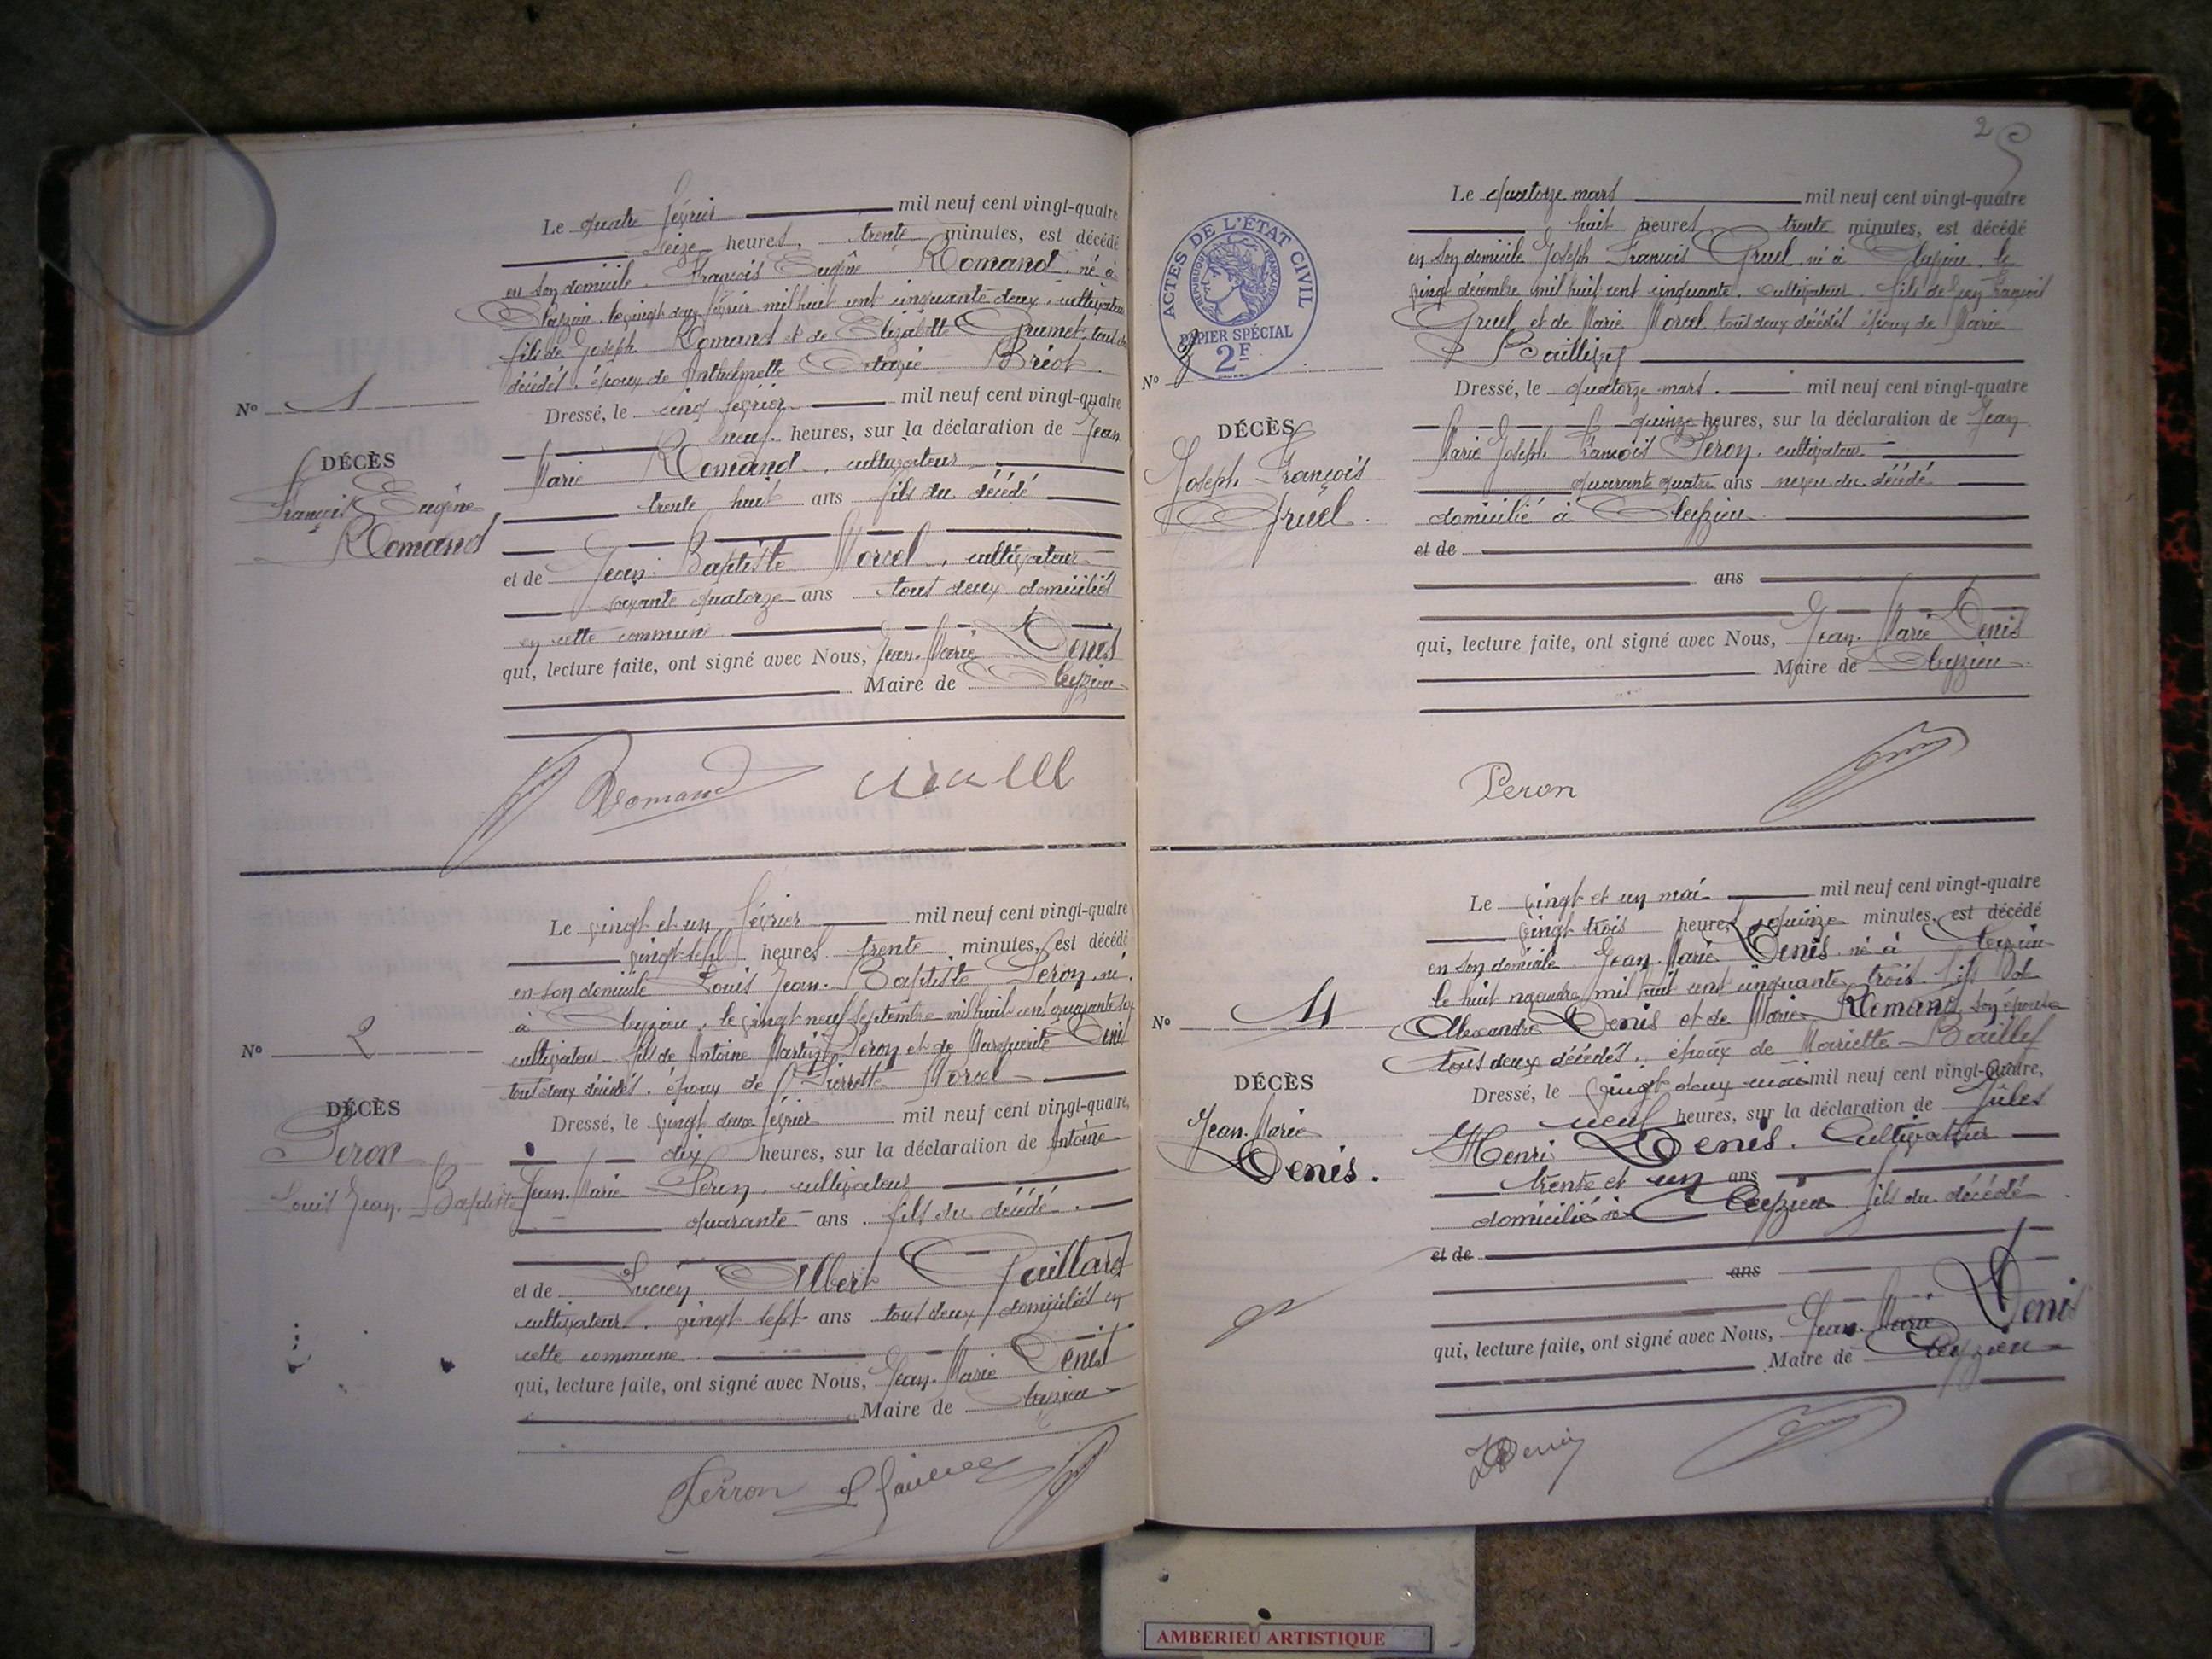 Le quatre février mil neuf cent vingt-quatre
seize heures, trente minutes, est décédé
en son domicile François Eugène Romand, né à
Cleyzieu, le vingt deux février mil huit cent cinquante deux, cultivateur
fils de Joseph Romand et de Elizabeth Grumet, tous
décédés, époux de Anthelmette Brêot.
No 1
DÉCÈS
François Eugène
Romand
Dressé, le cinq février mil neuf cent vingt-quatre
neuf heures, sur la déclaration de Jean
Marie Romand, cultivateur
trente huit ans fils du décédé
et de Jean-Baptiste Morcel, cultivateur
soixante quatorze ans tous deux domiciliés
en cette commune
qui, lecture faite, ont signé avec Nous, Jean-Marie Denis
Maire de Cleyzieu
Romand
Le vingt et un février mil neuf cent vingt-quatre
heures trente minutes, est décédé
en son domicile Louis Jean-Baptiste Peron, né
à Cleyzieu, le vingt neuf septembre mil huit cent quarante
cultivateur fils de Antoine Martin Peron et de Marguerite Denis
tous deux décédés, époux de Pierrette Morcel
No 2
DÉCÈS
Peron
Louis Jean-Baptiste
Dressé, le vingt deux février mil neuf cent vingt-quatre,
dix heures, sur la déclaration de Antoine
Jean-Marie Peron, cultivateur
quarante ans, fils du décédé.
et de Lucien Albert
cultivateur, vingt sept ans tous deux domiciliés en
cette commune
qui, lecture faite, ont signé avec Nous, Jean-Marie Denis
Maire de Cleyzieu
Perron
2
ACTES DE L'ÉTAT CIVIL
RÉPUBLIQUE FRANÇAISE
PAPIER SPÉCIAL
2F
Le quatorze mars mil neuf cent vingt-quatre
huit heures trente minutes, est décédé
en son domicile Joseph François Gruel né à Cleyzieu le
vingt décembre mil huit cent cinquante, cultivateur, fils de Jean François
Gruel et de Marie Morcel tous deux décédés époux de Marie
No 3
DÉCÈS
Joseph-François
Gruel.
Dressé, le quatorze mars. mil neuf cent vingt-quatre
quinze heures, sur la déclaration de Jean
Marie Joseph François Peron, cultivateur
quarante quatre ans neveu du décédé
domicilié à Cleyzieu
et de
ans
qui, lecture faite, ont signé avec Nous, Jean-Marie Denis
Maire de Cleyzieu
Peron
Le vingt et un mai mil neuf cent vingt-quatre
vingt trois heures quinze minutes, est décédé
en son domicile Jean-Marie Denis né à Cleyzieu
le huit novembre mil huit cent cinquante trois. fils de
Alexandre Denis et de Marie Romand, son épouse
tous deux décédés, époux de Mariette Bailly
No 4
DÉCÈS
Jean-Marie
Denis.
Dressé, le vingt deux mai mil neuf cent vingt-quatre,
neuf heures, sur la déclaration de Jules
Henri Denis. Cultivateur
trente et un ans
domicilié à Cleyzieu fils du décédé
et de
ans
qui, lecture faite, ont signé avec Nous, Jean-Marie Denis
Maire de Cleyzieu
AMBERIEU ARTISTIQUE